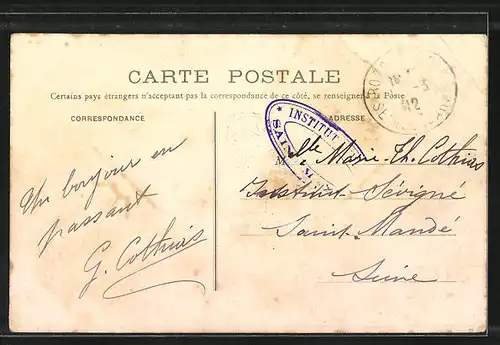 CARTE POSTALE
Certains pays étrangers n'acceptant pas la correspondance de ce côté, se renseigner à la Poste
CORRESPONDANCE
ADRESSE
INSTITUT
Mlle Marie-Th. Cothias
Institut Sévigné
Saint-Mandé
Seine
Un bonjour en
passant
G. Cothias